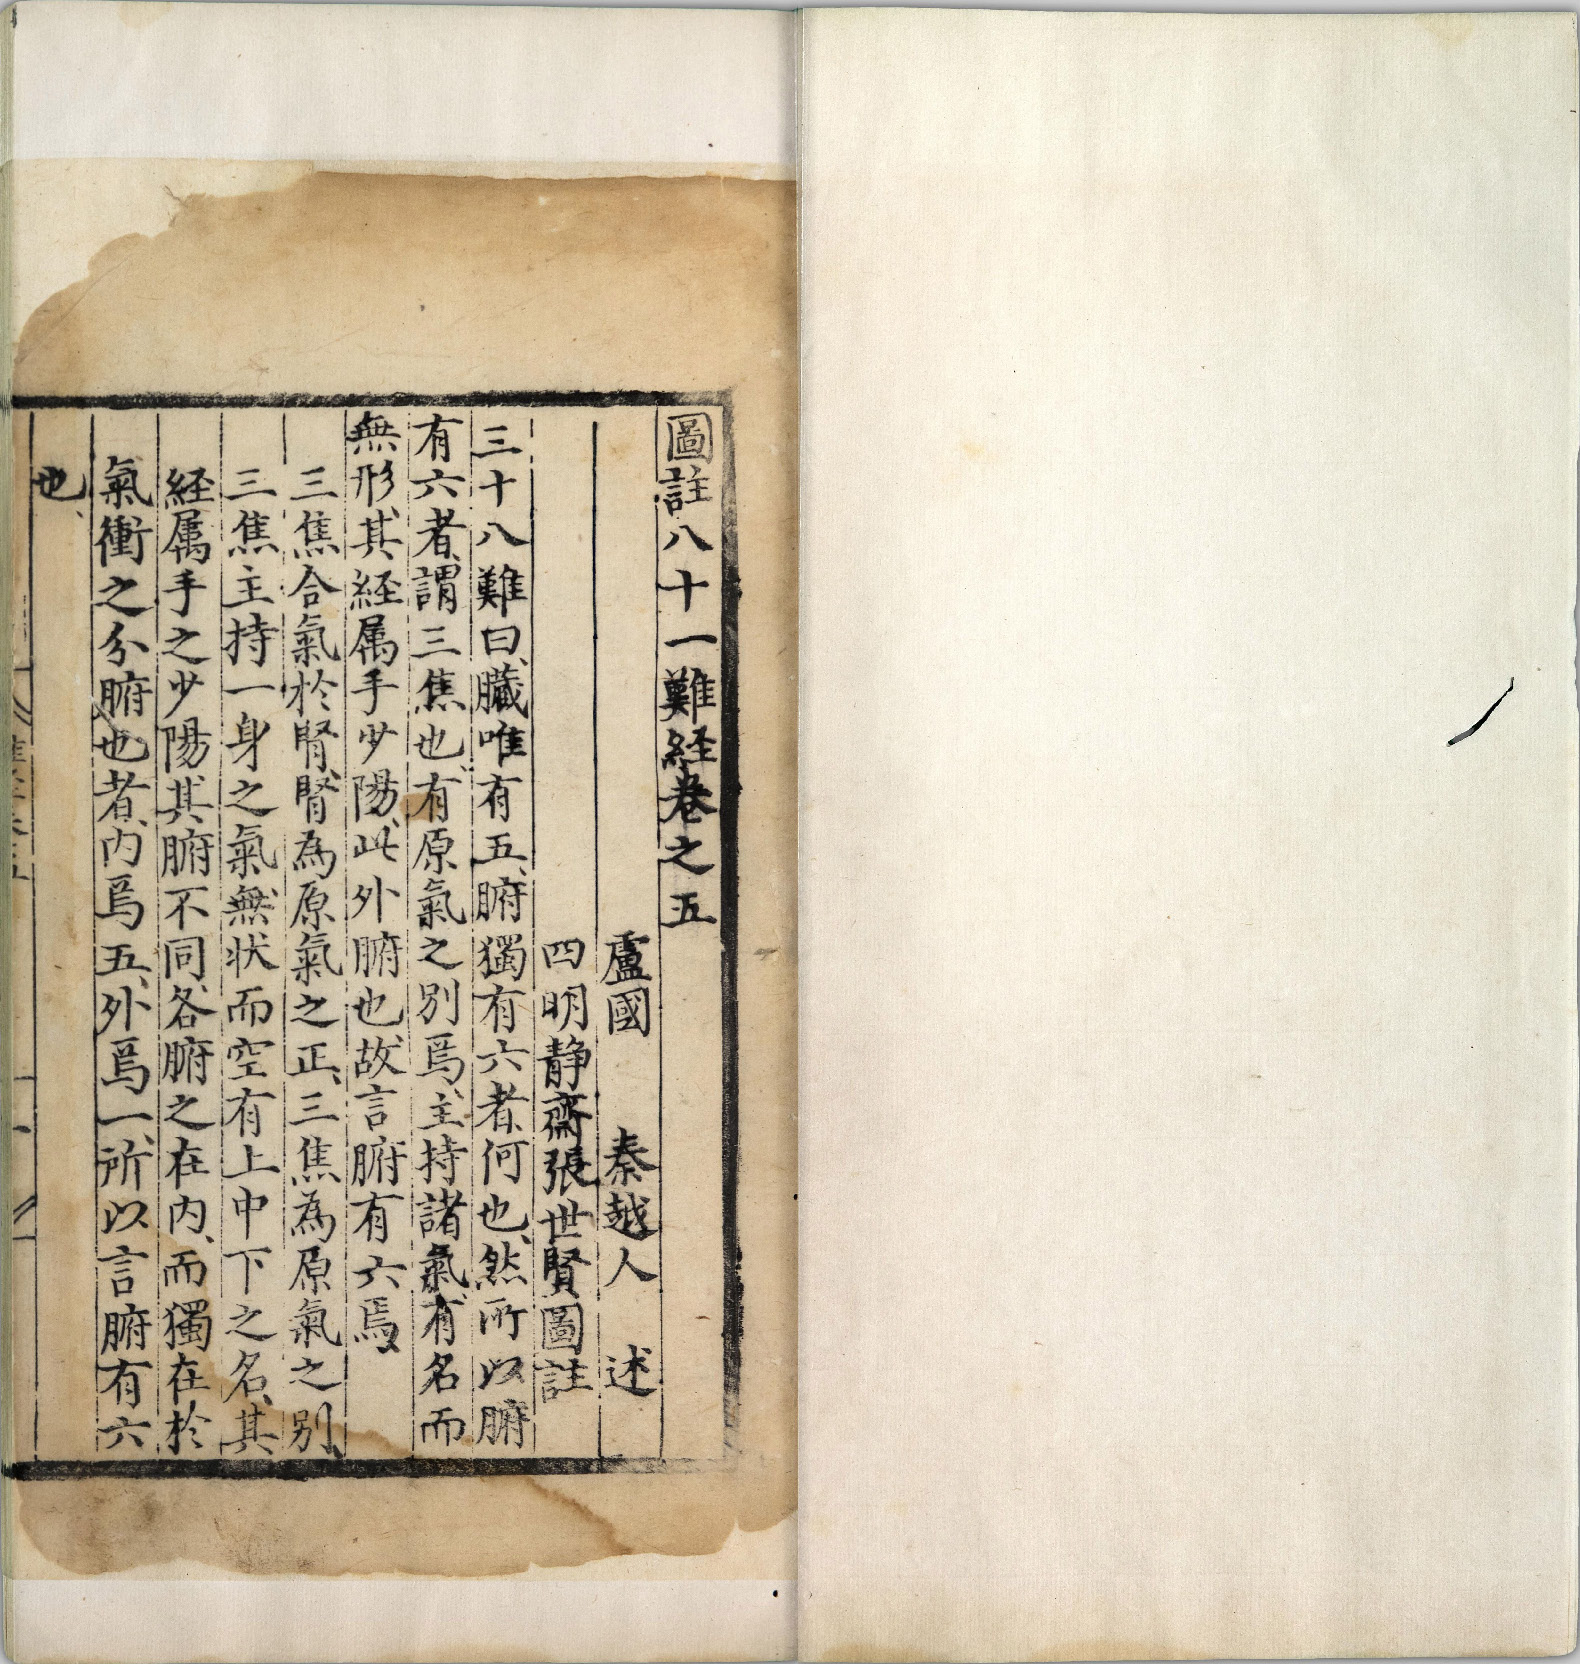 圖註八十一難経卷之五
盧國　秦越人　述
四明靜齋張世賢圖註
三十八難曰、臟唯有五、腑獨有六者、何也、然所以腑
有六者、謂三焦也、有原氣之別焉、主持諸氣、有名而
無形、其経属手少陽、此外腑也、故言腑有六焉、
三焦合氣於腎、腎為原氣之正、三焦為原氣之别、
三焦主持一身之氣、無状而空有上中下之名、其
経属手之少陽、其腑不同、各腑之在内、而獨在於
氣衝之分、腑也者、内焉五、外焉一、所以言腑有六
也、